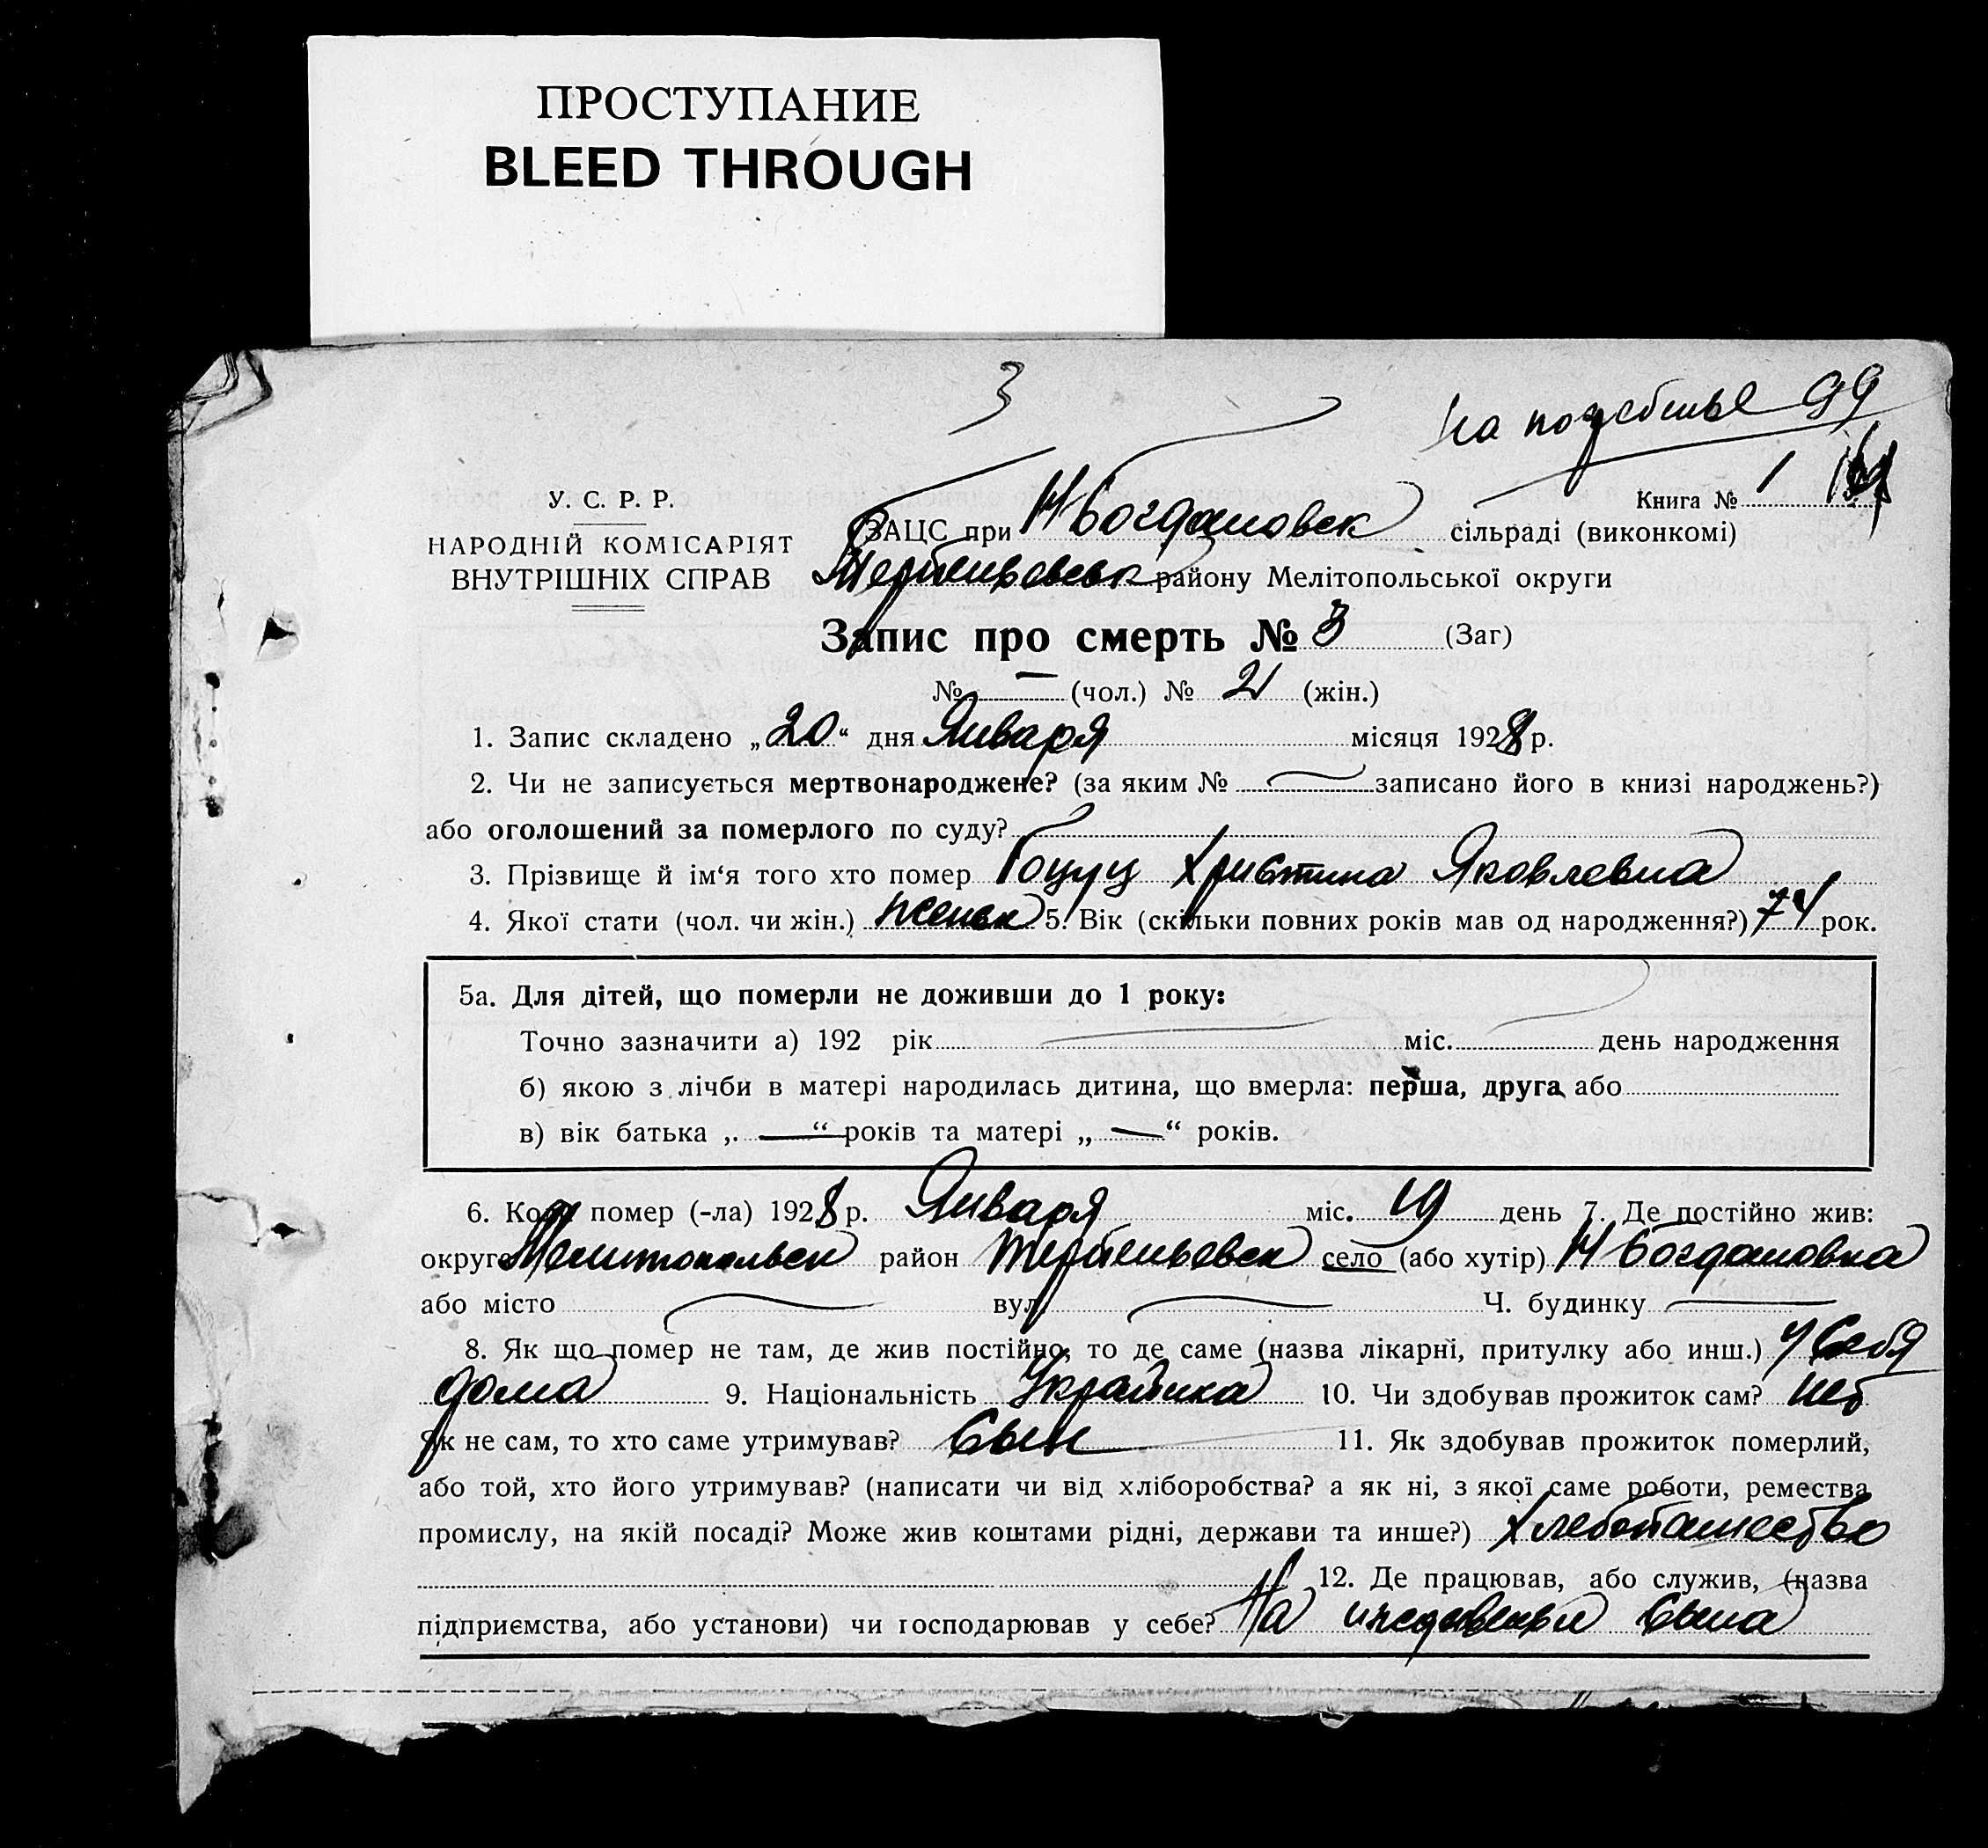 ПРОСТУПАНИЕ
BLEED THROUGH
3
на погребенье 99
У. С. Р. Р.
Книга № 1
НАРОДНІЙ КОМІСАРІЯТ
ВНУТРІШНІХ СПРАВ
ЗАЦС при Н Богдановск сільраді (виконкомі)
Терпеньевск району Мелітопольської округи
Запис про смерть № 3 (Заг)
№ — (чол.) № 2 (жін.)
1. Запис складено „20“ дня Января місяця 1928 р.
2. Чи не записується мертвонароджене? (за яким № записано його в книзі народжень?)
або оголошений за померлого по суду?
3. Прізвище й ім‘я того хто помер Гоцуц Христина Яковлевна
4. Якої стати (чол. чи жін.) женск 5. Вік (скільки повних років мав од народження?) 74 рок.
5а. Для дітей, що померли не доживши до 1 року:
Точно зазначити а) 192 рік міс. день народження
б) якою з лічби в матері народилась дитина, що вмерла: перша, друга, або
в) вік батька „ — “ років та матері „ — “ років.
6. Коли помер (-ла) 1928 р. Января міс. 19 день 7. Де постійно жив:
округа Мелитопольск район Терпеньевск село (або хутір) Н Богдановка
або місто вул. Ч. будинку
8. Як що помер не там, де жив постійно, то де саме (назва лікарні, притулку або инш.) у себя
дома 9. Національність Украинка 10. Чи здобував прожиток сам? нет
Як не сам, то хто саме утримував? Сын 11. Як здобував прожиток померлий,
або той, хто його утримував? (написати чи від хліборобства? а як ні, з якої саме роботи, ремества
промислу, на якій посаді? Може жив коштами рідні, держави та инше?) Хлебопашество
12. Де працював, або служив, (назва
підприємства, або установи) чи господарював у себе? На иждевеньи сына